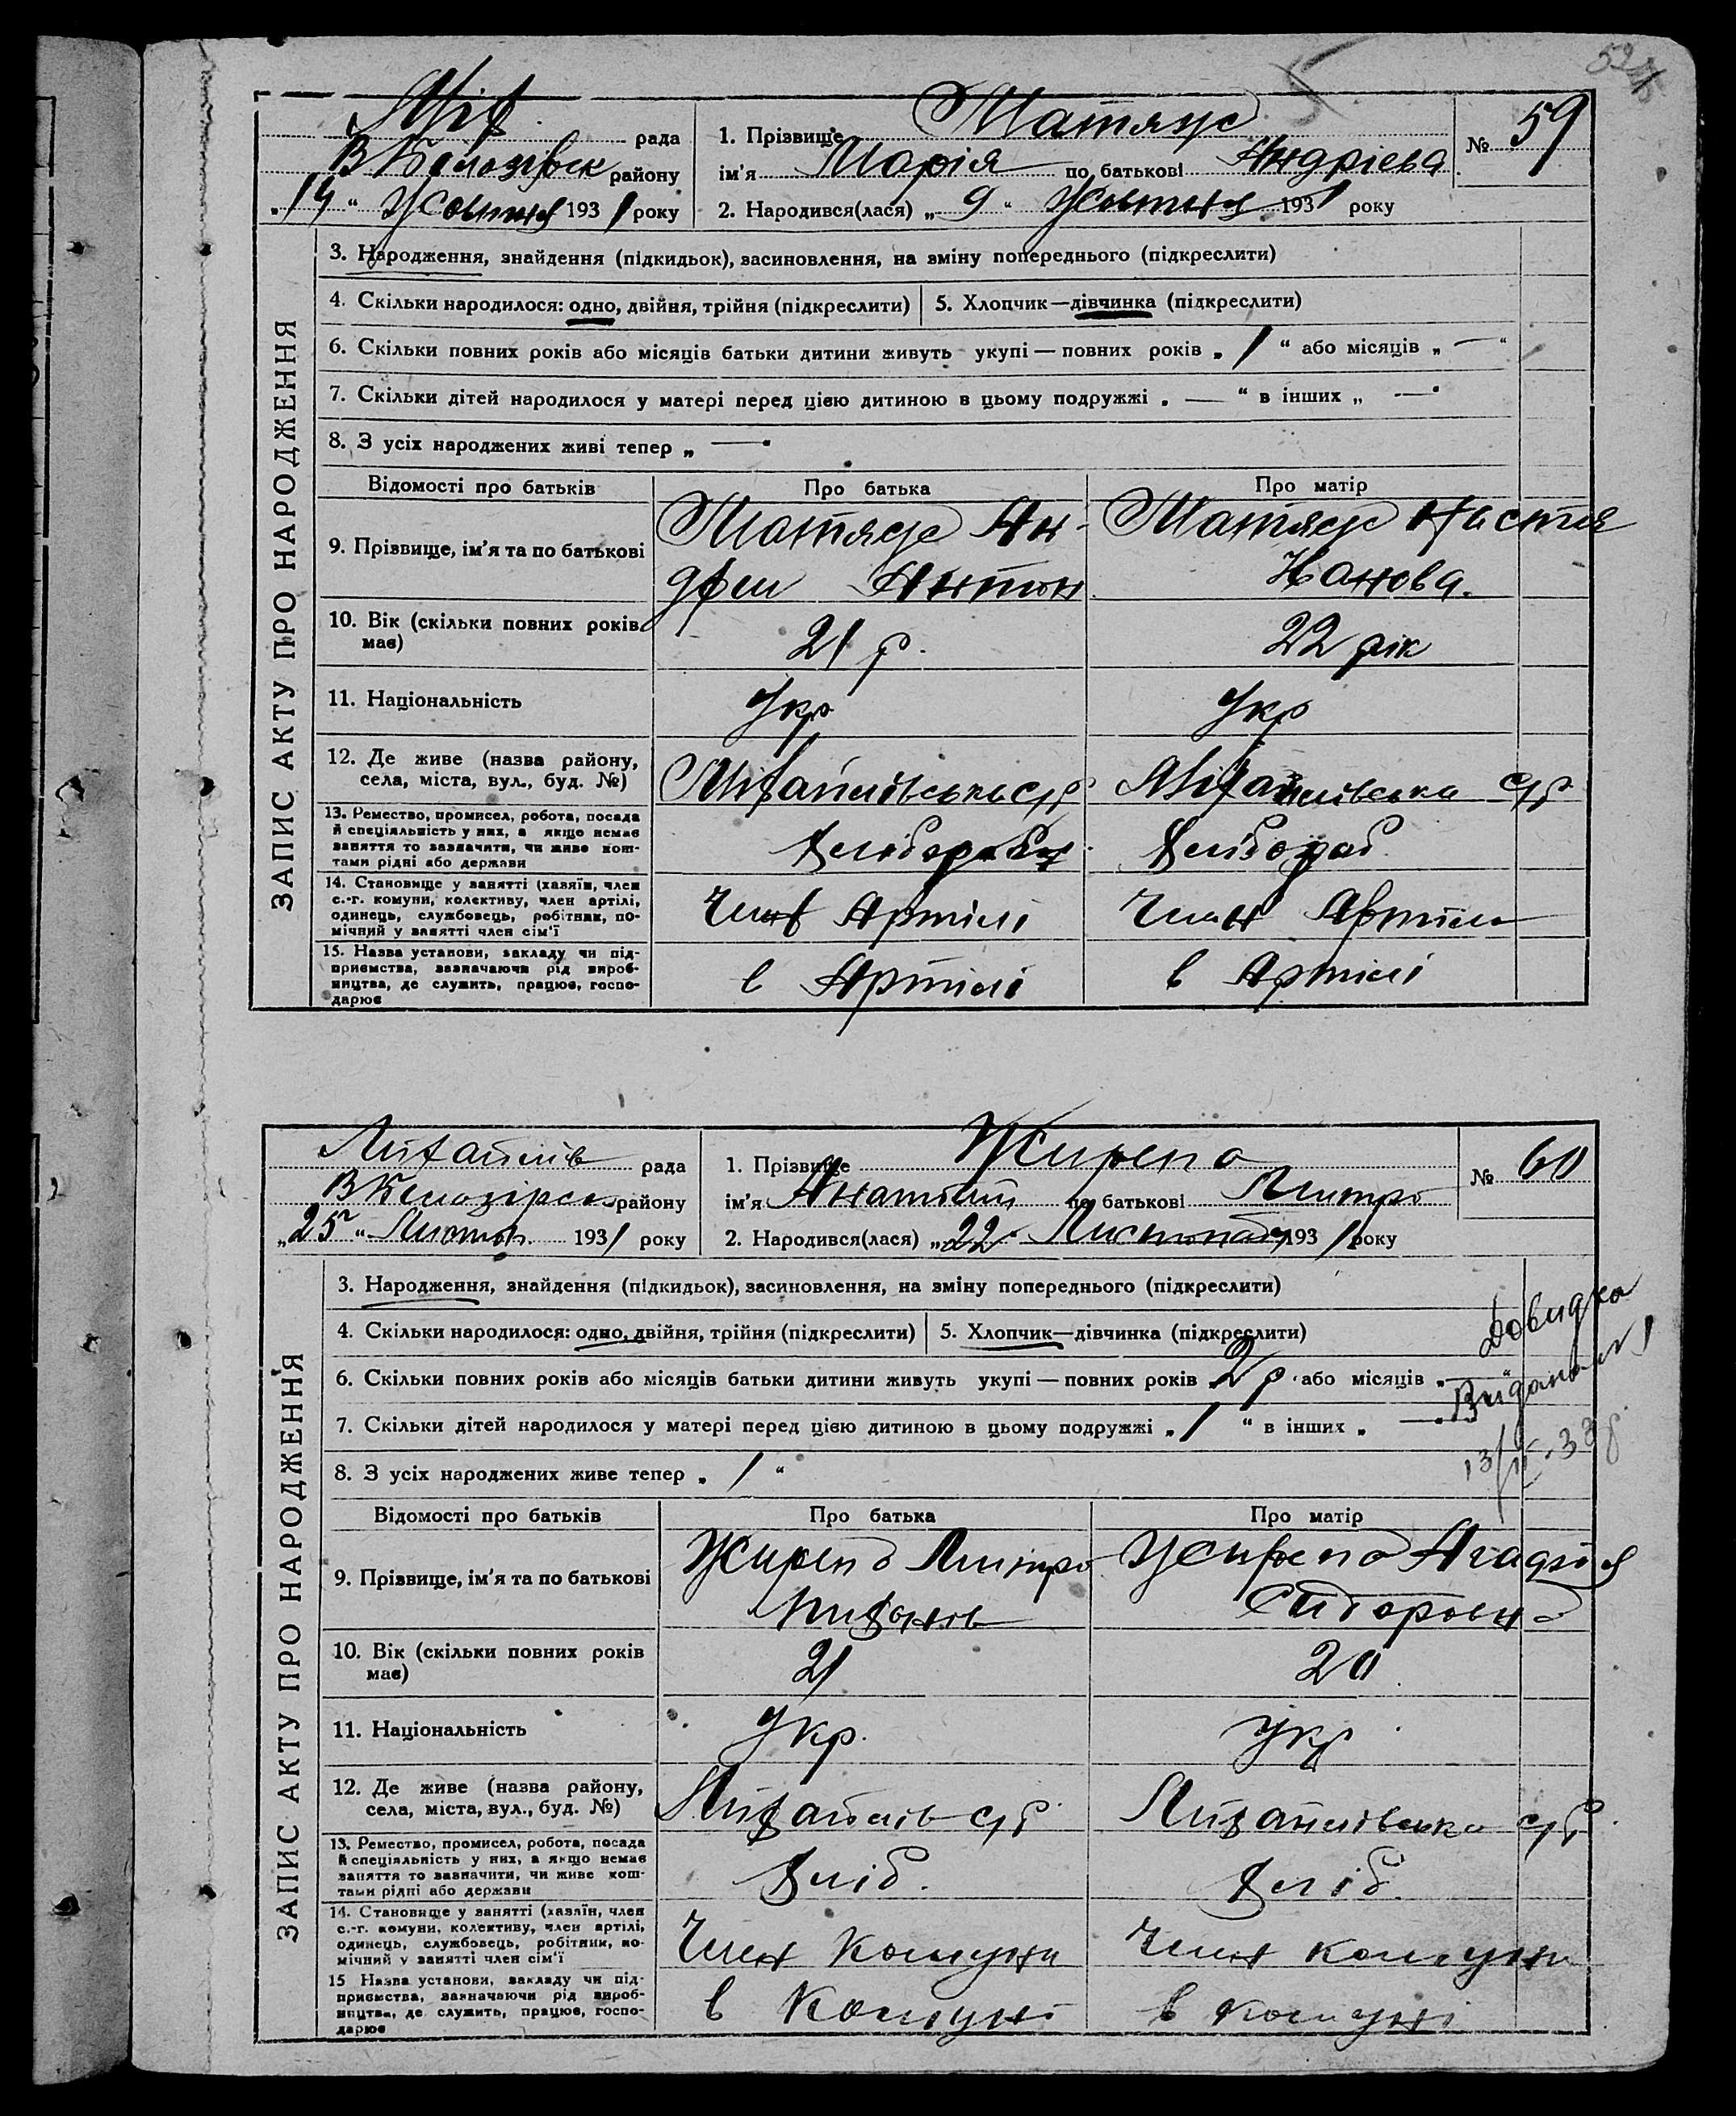 59
Мих. рада
В Білозірськ району
„14“ Жовтня 1931 року
1. Прізвище Матяш
ім'я Марія по батькові Андрієва
2. Народився(лася) „9“ Жовтня 1931 року
№ 59
ЗАПИС АКТУ ПРО НАРОДЖЕННЯ
3. Народження, знайдення (підкидьок), засиновлення, на зміну попереднього (підкреслити)
4. Скільки народилося: одно, двійня, трійня (підкреслити)
5. Хлопчик—дівчинка (підкреслити)
6. Скільки повних років або місяців батьки дитини живуть укупі — повних років „1“ або місяців „—“
7. Скільки дітей народилося у матері перед цією дитиною в цьому подружжі „—“ в інших „—“
8. З усіх народжених живі тепер „—“
Відомості про батьків Про батька Про матір
9. Прізвище, ім'я та по батькові
Матяш Ан-
дрей Антон
Матяш Настя
10. Вік (скільки повних років має)
21 р.
22 рік
11. Національність
Укр
Укр
12. Де живе (назва району,
села, міста, вул., буд. №)
Михайлівська с/р
Михайлівська с/р
13. Ремество, промисел, робота, посада
й спеціяльність у них, а якщо немає
заняття то зазначити, чи живе кош-
тами рідні або держави
Хлібороб
Хлібороб
14. Становище у занятті (хазяїн, член
с.-г. комуни, колективу, член артілі,
одинець, службовець, робітник, по-
мічний у занятті член сім'ї
Член Артілі
Член Артіли
15. Назва установи, закладу чи під-
приємства, зазначаючи рід вироб-
ництва, де служить, працює, госпо-
дарює
в Артілі
в Артілі
Михайлів рада
В Білозірськ району
„25“ Листоп. 1931 року
1. Прізвище
ім'я Анатолий по батькові Дмитро
2. Народився(лася) „22“ Листопада 1931 року
№ 60
ЗАПИС АКТУ ПРО НАРОДЖЕННЯ
3. Народження, знайдення (підкидьок), засиновлення, на зміну попереднього (підкреслити)
4. Скільки народилося: одно, двійня, трійня (підкреслити)
5. Хлопчик—дівчинка (підкреслити)
6. Скільки повних років або місяців батьки дитини живуть укупі — повних років 2 р. або місяців „—“
7. Скільки дітей народилося у матері перед цією дитиною в цьому подружжі „1“ в інших „—“
8. З усіх народжених живе тепер „1“
Довидка
Видана
Відомості про батьків Про батька Про матір
9. Прізвище, ім'я та по батькові
Дмитро
Сидоровна
10. Вік (скільки повних років має)
21
20
11. Національність
Укр.
Укр
12. Де живе (назва району,
села, міста, вул., буд. №)
Михайлів с/р
Михайлівська с/р
13. Ремество, промисел, робота, посада
й спеціяльність у них, а якщо немає
заняття то зазначити, чи живе кош-
тами рідні або держави
Хліб.
Хліб.
14. Становище у занятті (хазяїн, член
с.-г. комуни, колективу, член артілі,
одинець, службовець, робітник, по-
мічний у занятті член сім'ї
Член Комуни
Член комуни
15 Назва установи, закладу чи під-
приємства, зазначаючи рід вироб-
ництва, де служить, працює, госпо-
дарює
в Комуні
в комуні